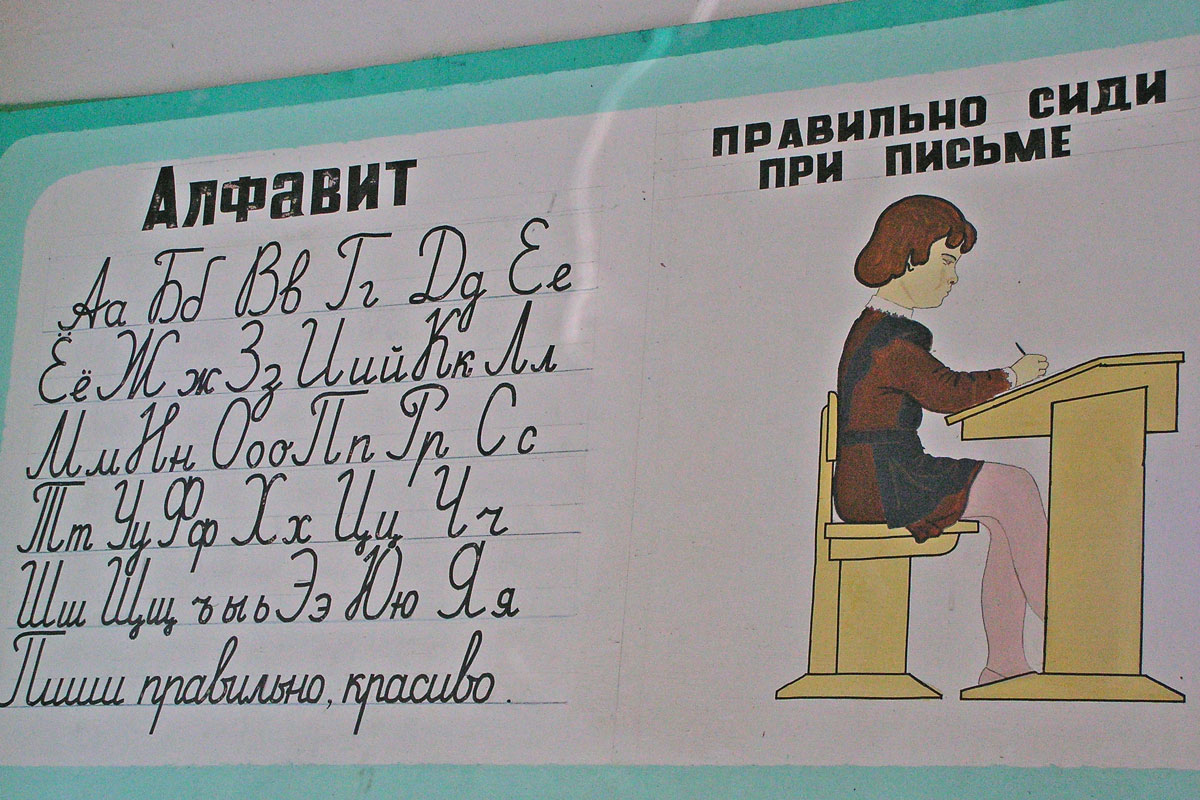 Алфавит
Аа Бб Вв Гг Дд Ее
Ёё Жж Зз Иий Кк Лл
Мм Нн Ооо Пп Рр Сс
Тт Уу Фф Хх Цц Чч
Шш Щщ ъ ы ь Ээ Юю Яя
Пиши правильно, красиво.
ПРАВИЛЬНО СИДИ
ПРИ ПИСЬМЕ